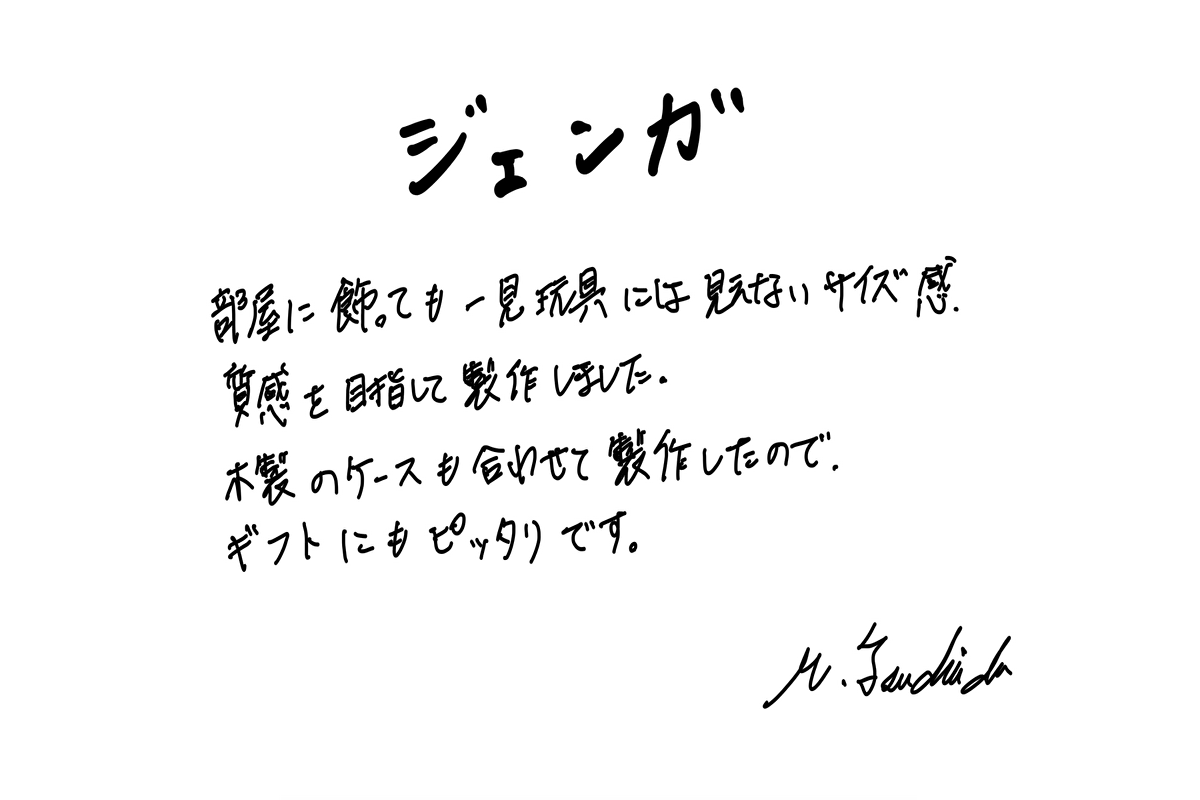 ジェンガ
部屋に飾っても一見玩具には見えないサイズ感.
質感を目指して製作しました.
木製のケースも合わせて製作したので.
ギフトにもピッタリです。
M. Tsuchida